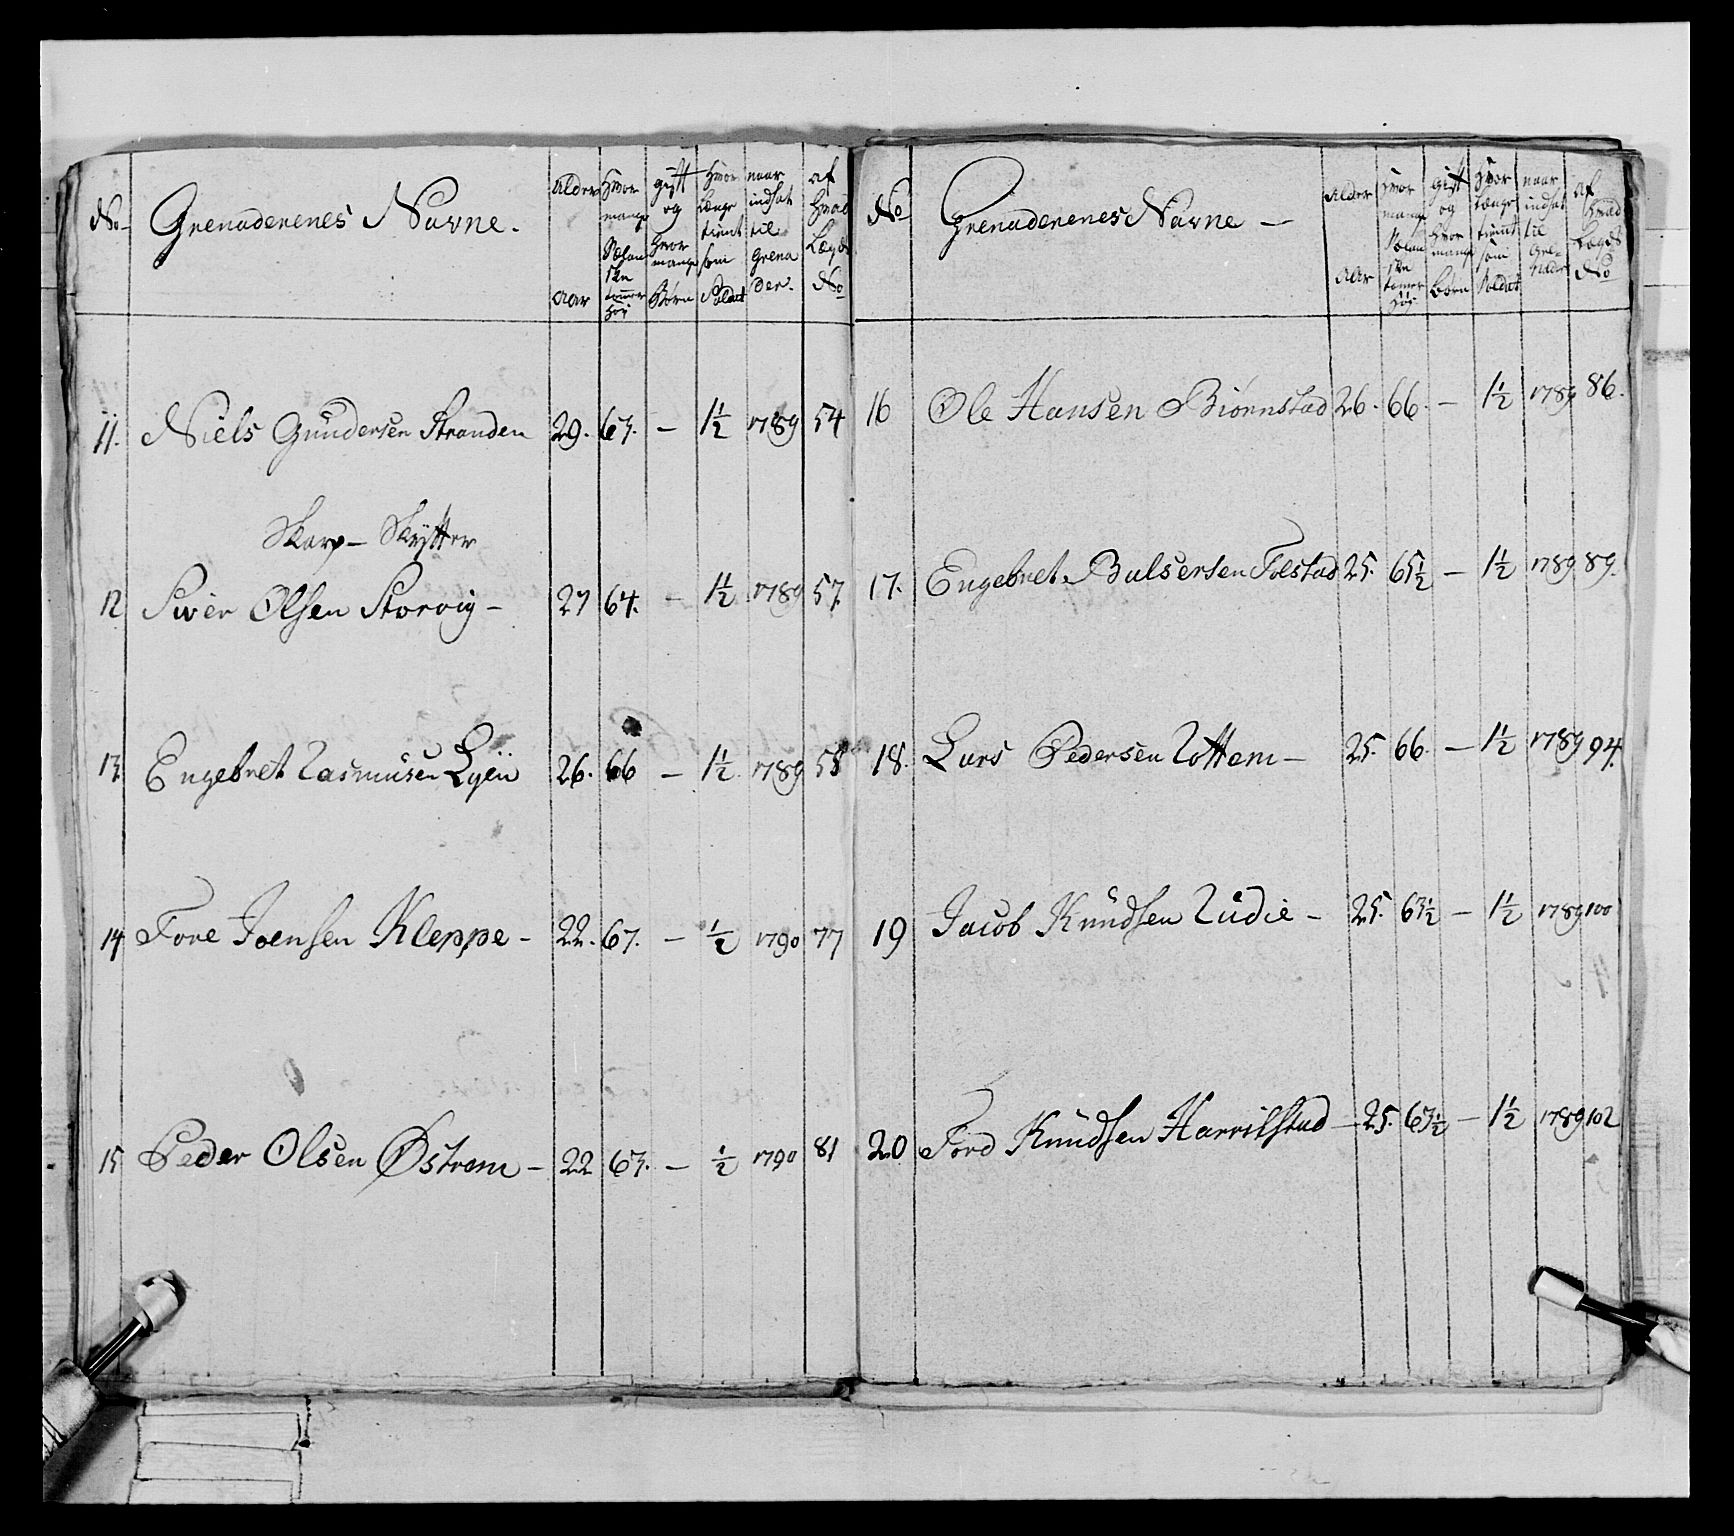 No Grenaderenes Navne. Alder Aar Hvor mange Sælan ske tommer høi gift og hvor mange Børn Hvor Længe tient som Soldat naar indsat til Grena der. af hvad Lægd No
11. Niels Gundersen Stranden 29. 63. — 1½ 1789 54
Skarp- Skytter
12 Siver Olsen Storvig — 27 64. — 1½ 1789 57.
13. Engebret Rasmusen Lyen 26. 66 — 1½ 1789 58
14 Tore Joensen Kleppe — 22. 67. — ½ 1790 77
15 Peder Olsen Østrem — 22 63. — ½ 1790 81
No Grenaderenes Navne — Alder Aar Hvor mange Sælan ske tommer høi gift og hvor mange børn Hvor Længe tient som Soldat naar indsat til Gre- nader af hvad Lægds No
16 Ole Hansen Biørnstad 26. 66. — 1½ 1789 86.
17. Engebret Balsersen Tolstad 25. 65½ — 1½ 1789 89.
18. Lars Pedersen Rottem — 25. 66. — 1½ 1789 94.
19 Jacob Knudsen Rudie — 25. 63½ — 1½ 1789 100
20 Tord Knudsen Harrilstad — 25. 63½ — 1½ 1789 102